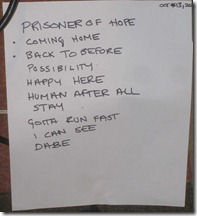 PRISONER OF HOPE
• COMING HOME
• BACK TO BEFORE
POSSIBILITY
HAPPY HERE
HUMAN AFTER ALL
STAY
GOTTA RUN FAST
I CAN SEE
DABE